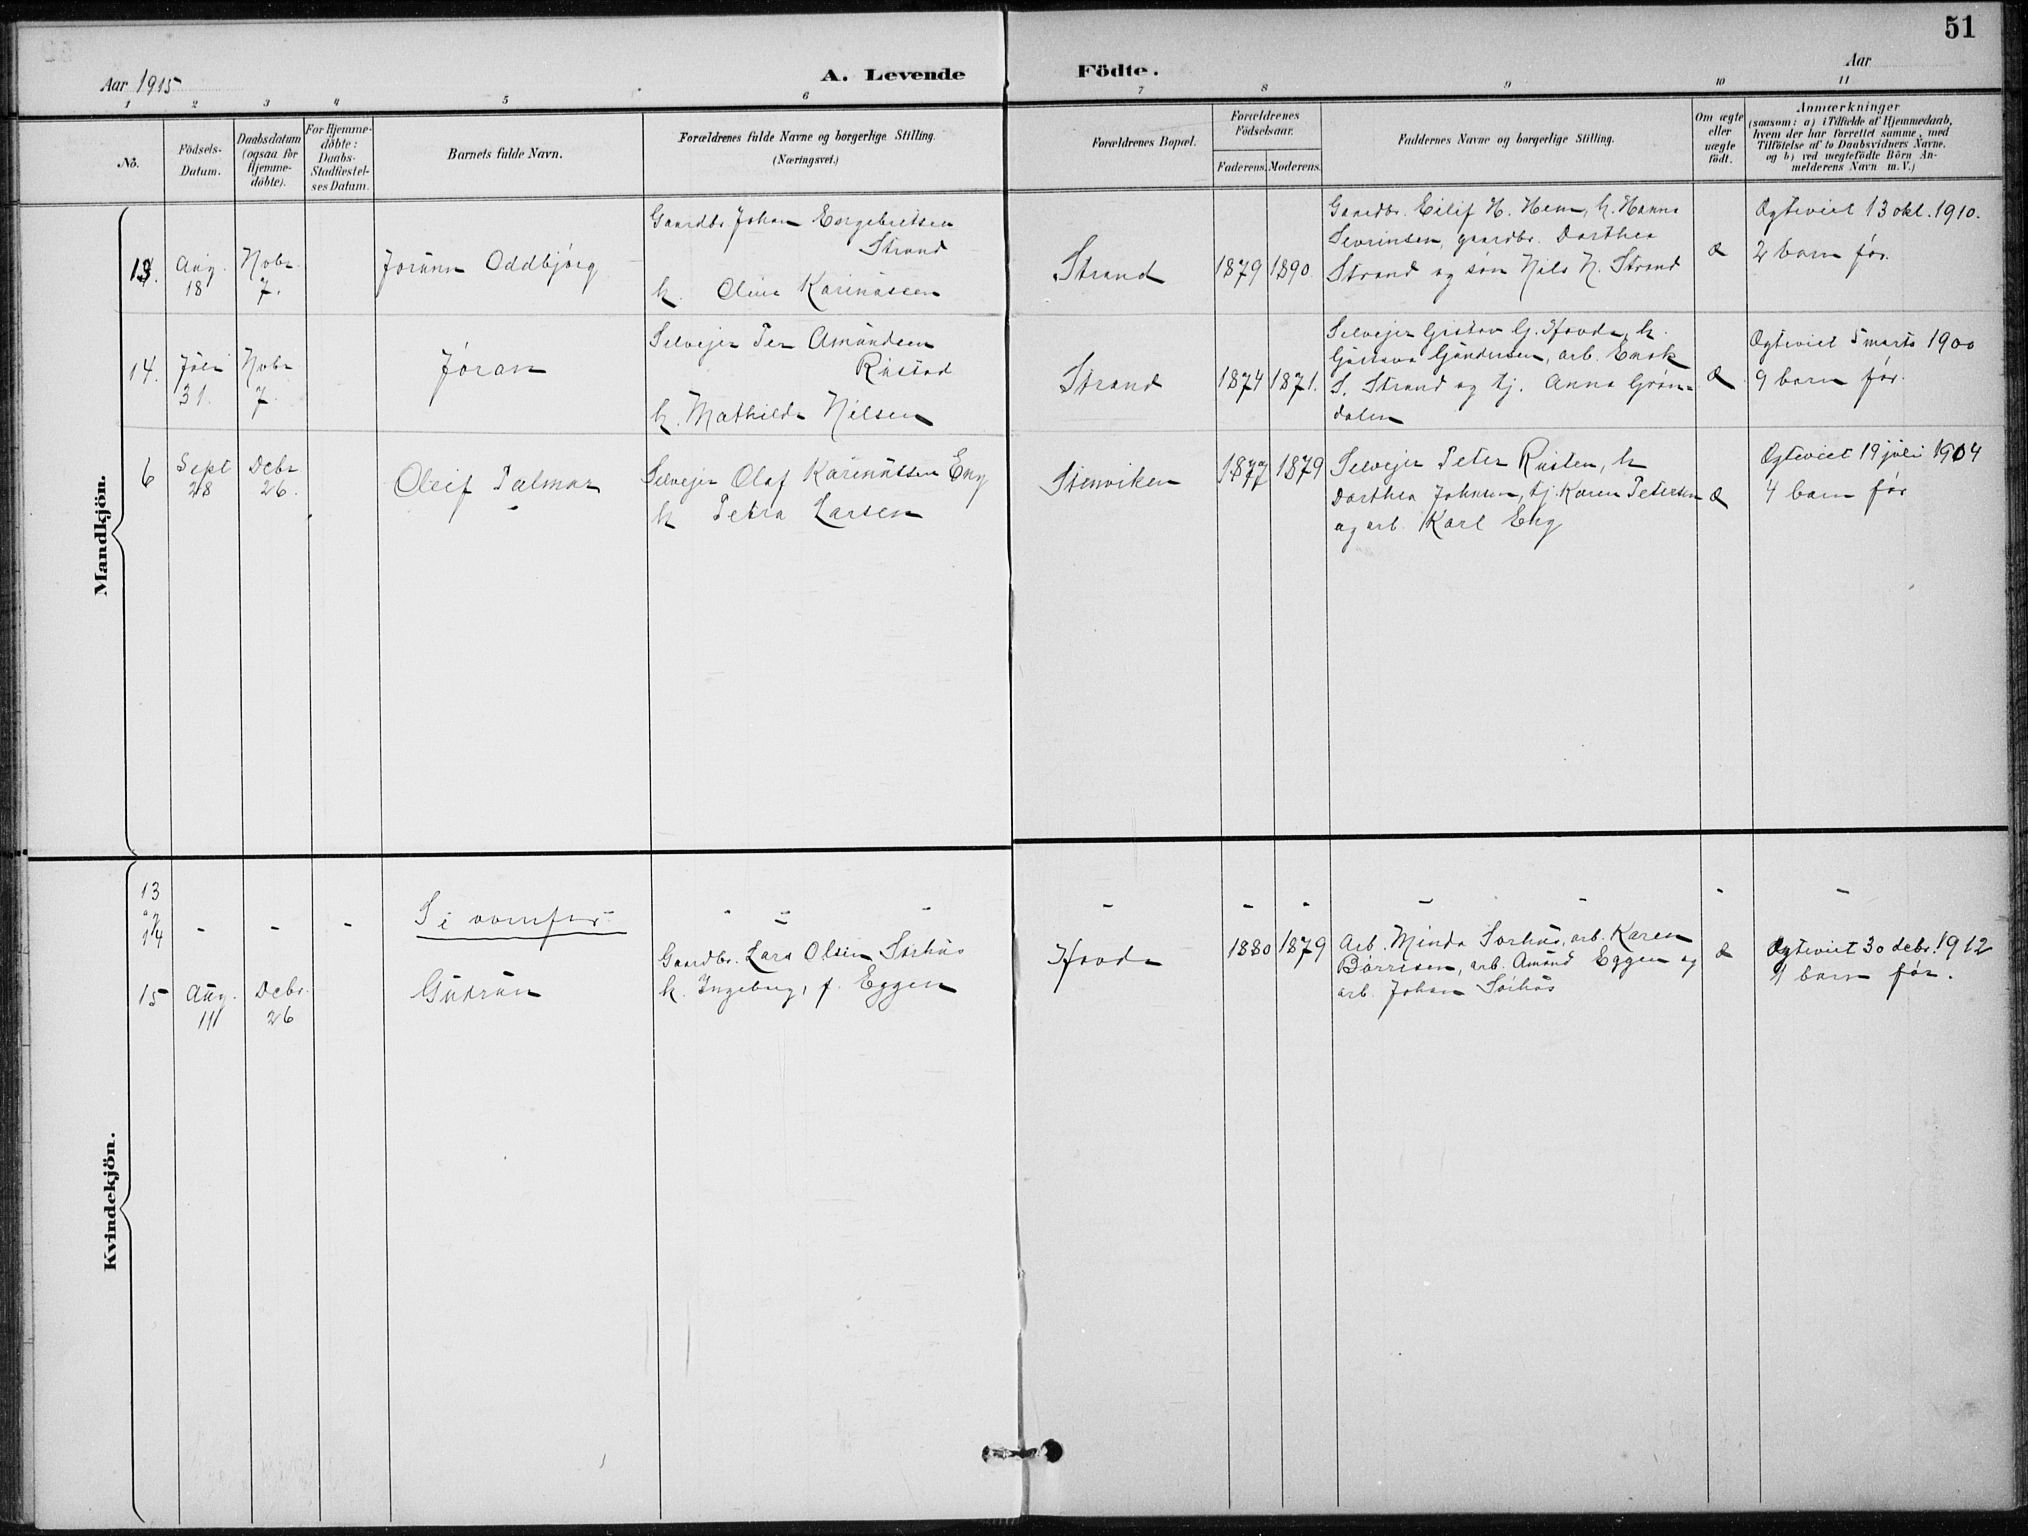 51
Aar 1915
A. Levende Födte.
Aar
1 2 3 4 5 6 7 8 9 10 11
No.
Födsels-
Datum.
Daabsdatum
(ogsaa for
Hjemme-
döbte).
For Hjemme-
döbte:
Daabs-
Stadfæstel-
ses Datum.
Barnets fulde Navn.
Forældrenes fulde Navne og borgerlige Stilling.
(Næringsvei.)
Forældrenes Bopæl.
Forældrenes
Födselsaar.
Faderens. Moderens.
Faddernes Navne og borgerlige Stilling.
Om ægte
eller
uægte
födt.
Anmærkninger
(saasom: a) i Tilfælde af Hjemmedaab,
hvem der har forrettet samme, med
Tilföielse af to Daabsvidners Navne,
og b) ved uægtefödte Börn An-
melderens Navn m.V.)
Mandkjön.
13.
Aug.
18
Nobr
7.
Jorunn Oddbjörg
Gaardbr. Johan Engebretsen
Strand
h. Oline Karinussen
Strand
1879 1890.
Gaardbr. Eilif H. Hem, h. Hanna
Sevrinsen, gaardbr. Dorthea
Strand og søn Nils N. Strand
æ
Ogteviet 13 okt. 1910.
2 barn før.
14.
Juli
31.
Nobr
7.
Jöran
Selvejer Per Amundsen
Rustad
h. Mathilde Nilsen
Strand
1874 1871.
Selvejer Gustav G. Hovde, h.
Gustava Gundersen, arb. Enok
S. Strand og tj. Anna Grøn-
dalen
æ
Ogteviet 5 marts 1900
9 barn før.
6
Sept
28
Debr
26.
Oleif Palmar
Selvejer Olaf Karinussen Eng
h Petra Larsen
Stenviken
1877 1879
Selvejer Peter Rusten, h
Dorthea Johnsen, tj. Karen Petersen
og arb. Karl Eng
æ
Ogteviet 19 juli 1904
4 barn før
Kvindekjön.
13
og
14
- - -
Si ovenfor
- - - - - - - - - -
15
Aug.
11
Debr.
26
Gudrun
Gaardbr. Lars Olsen Sörhus
h. Ingeborg, f. Eggen
Hovde
1880 1879
Arb. Minda Sorhus, arb. Karen
Börresen, arb. Amund Eggen og
arb. Johan Sörhus
æ
Ogteviet 30 debr. 1912
4 barn før.